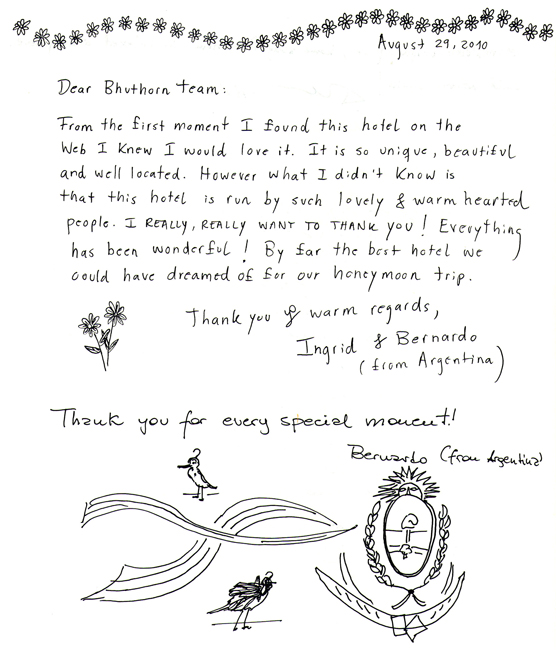 August 29, 2010
Dear Bhuthorn team:
From the first moment I found this hotel on the
Web I knew I would love it. It is so unique, beautiful
and well located. However what I didn't know is
that this hotel is run by such lovely & warm hearted
people. I REALLY, REALLY WANT TO THANK you! Everything
has been wonderful! By far the best hotel we
could have dreamed of for our honeymoon trip.
Thank you & warm regards,
Ingrid & Bernardo
(from Argentina)
Thank you for every special moment!
Bernardo (from Argentina)